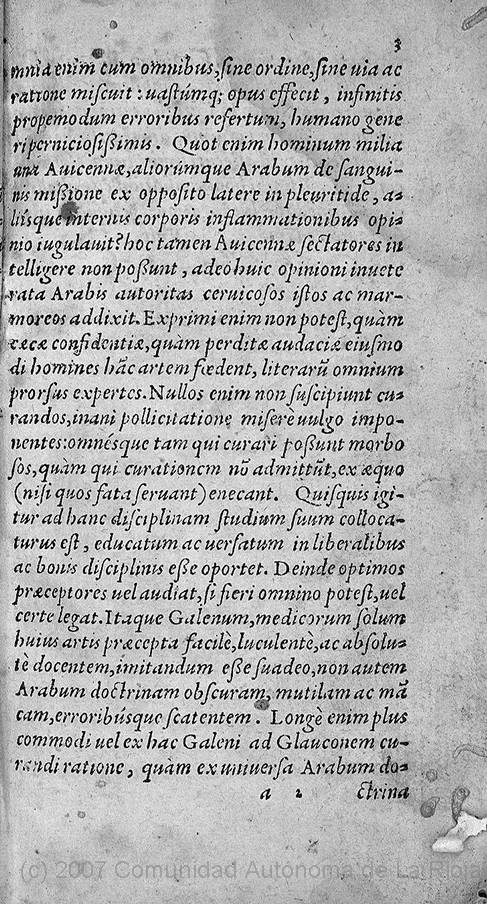 3
mnia enim cum omnibus, sine ordine, sine uia ac
ratione miscuit: uastúmq; opus effecit, infinitis
propemodum erroribus refertum, humano gene
ri perniciosißimis. Quot enim hominum milia
una Auicennæ, aliorúmque Arabum de sangui-
nis mißione ex opposito latere in pleuritide, a-
liísque internis corporis inflammationibus opi-
nio iugulauit? hoc tamen Auicennæ sectatores in
telligere non poßunt, adeo huic opinioni inuete
rata Arabis autoritas ceruicosos istos ac mar-
moreos addixit. Exprimi enim non potest, quàm
cæcæ confidentiæ, quàm perditæ audaciæ eiusmo
di homines hãc artem fœdent, literarũ omnium
prorsus expertes. Nullos enim non suscipiunt cu-
randos, inani pollicitatione miserè uulgo impo-
nentes: omnésque tam qui curari poßunt morbo
sos, quàm qui curationem nõ admittũt, ex æquo
(nisi quos fata seruant) enecant. Quisquis igi-
tur ad hanc disciplinam studium suum colloca-
turus est, educatum ac uersatum in liberalibus
ac bonis disciplinis eße oportet. Deinde optimos
præceptores uel audiat, si fieri omnino potest, uel
certe legat. Itaque Galenum, medicorum solum
huius artis præcepta facilè, luculentè, ac absolu-
tè docentem, imitandum eße suadeo, non autem
Arabum doctrinam obscuram, mutilam ac mã
cam, erroribúsque scatentem. Longè enim plus
commodi uel ex hac Galeni ad Glauconem cu-
randi ratione, quàm ex uniuersa Arabum do-
a 2 ctrina
(c) 2007 Comunidad Autónoma de La Rioja